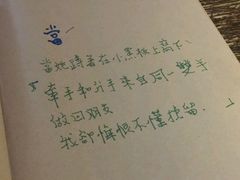 當一
當她蹲著在小黑板上寫下、
『牽手和分手來自同一雙手
做回朋友
我卻悔恨不懂挽留.』